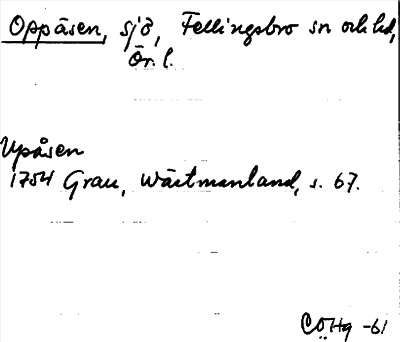 Oppåsen, sjö, Fellingsbro sn och hd,
Ör. l.
Upåsen
1754 Grau, Wästmanland, s. 67.
CÖHg -61